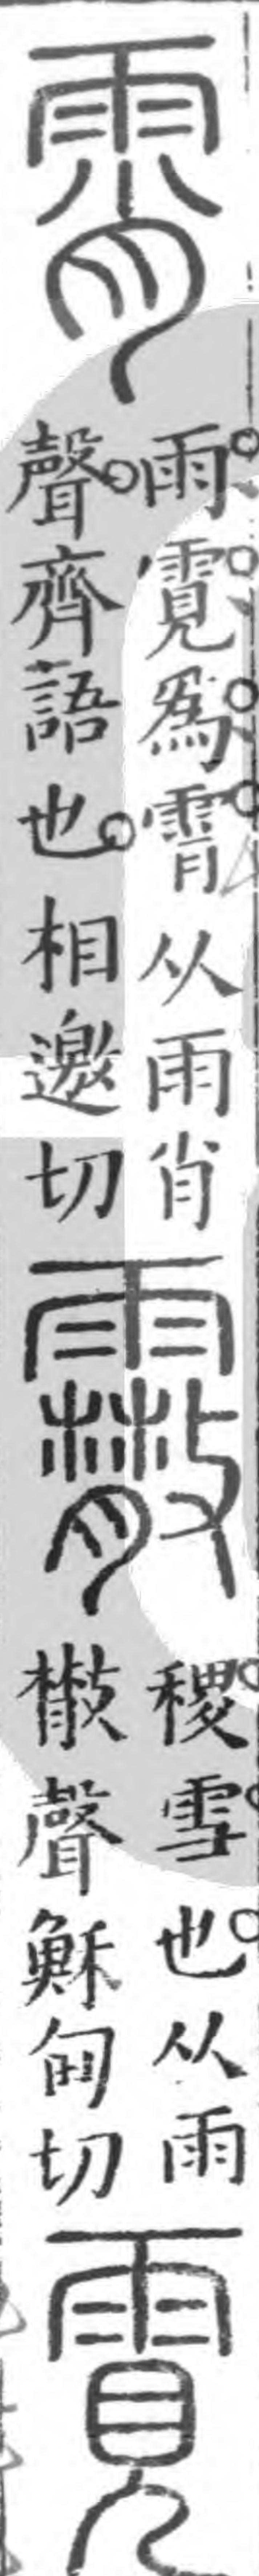 霄
雨霓爲霄从雨肖
聲齊語也相邀切
霰
稷雪也从雨
㪔聲穌甸切